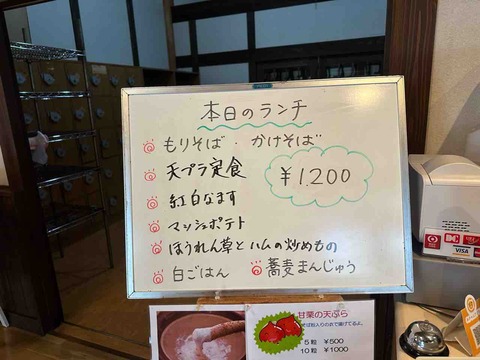 本日のランチ
もりそば・かけそば
天プラ定食
¥1.200
紅白なます
マッシュポテト
ほうれん草とハムの炒めもの
白ごはん
蕎麦まんじゅう
甘栗の天ぷら
5粒 ¥500
10粒 ¥1000